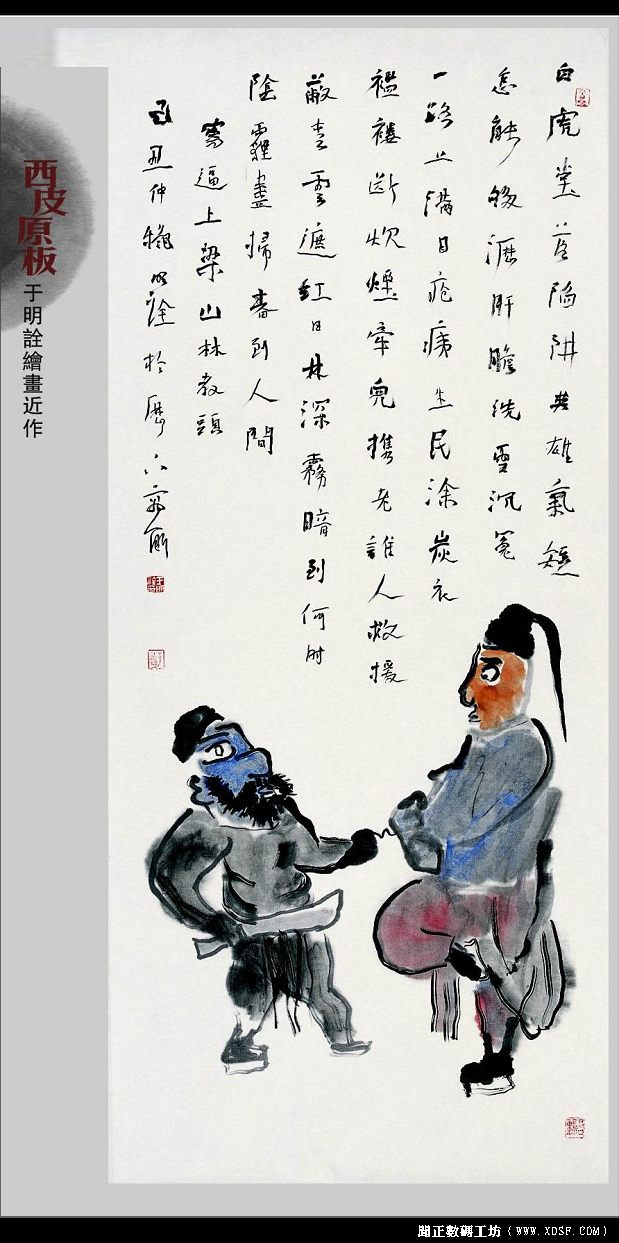 白虎堂陷阱英雄氣短
怎能够瀝肝膽洗雪沉冤
一路上滿目瘡痍生民涂炭衣
襤褸斷炊煙牽兒携老誰人救援
蔽青雲遮紅日林深霧暗到何时
陰霾盡掃春到人間
寫逼上梁山林教頭
己丑仲穐明詮於歷下
西皮原板
于明詮繪畫近作
聞正數碼工坊（WWW.XDSF.COM）